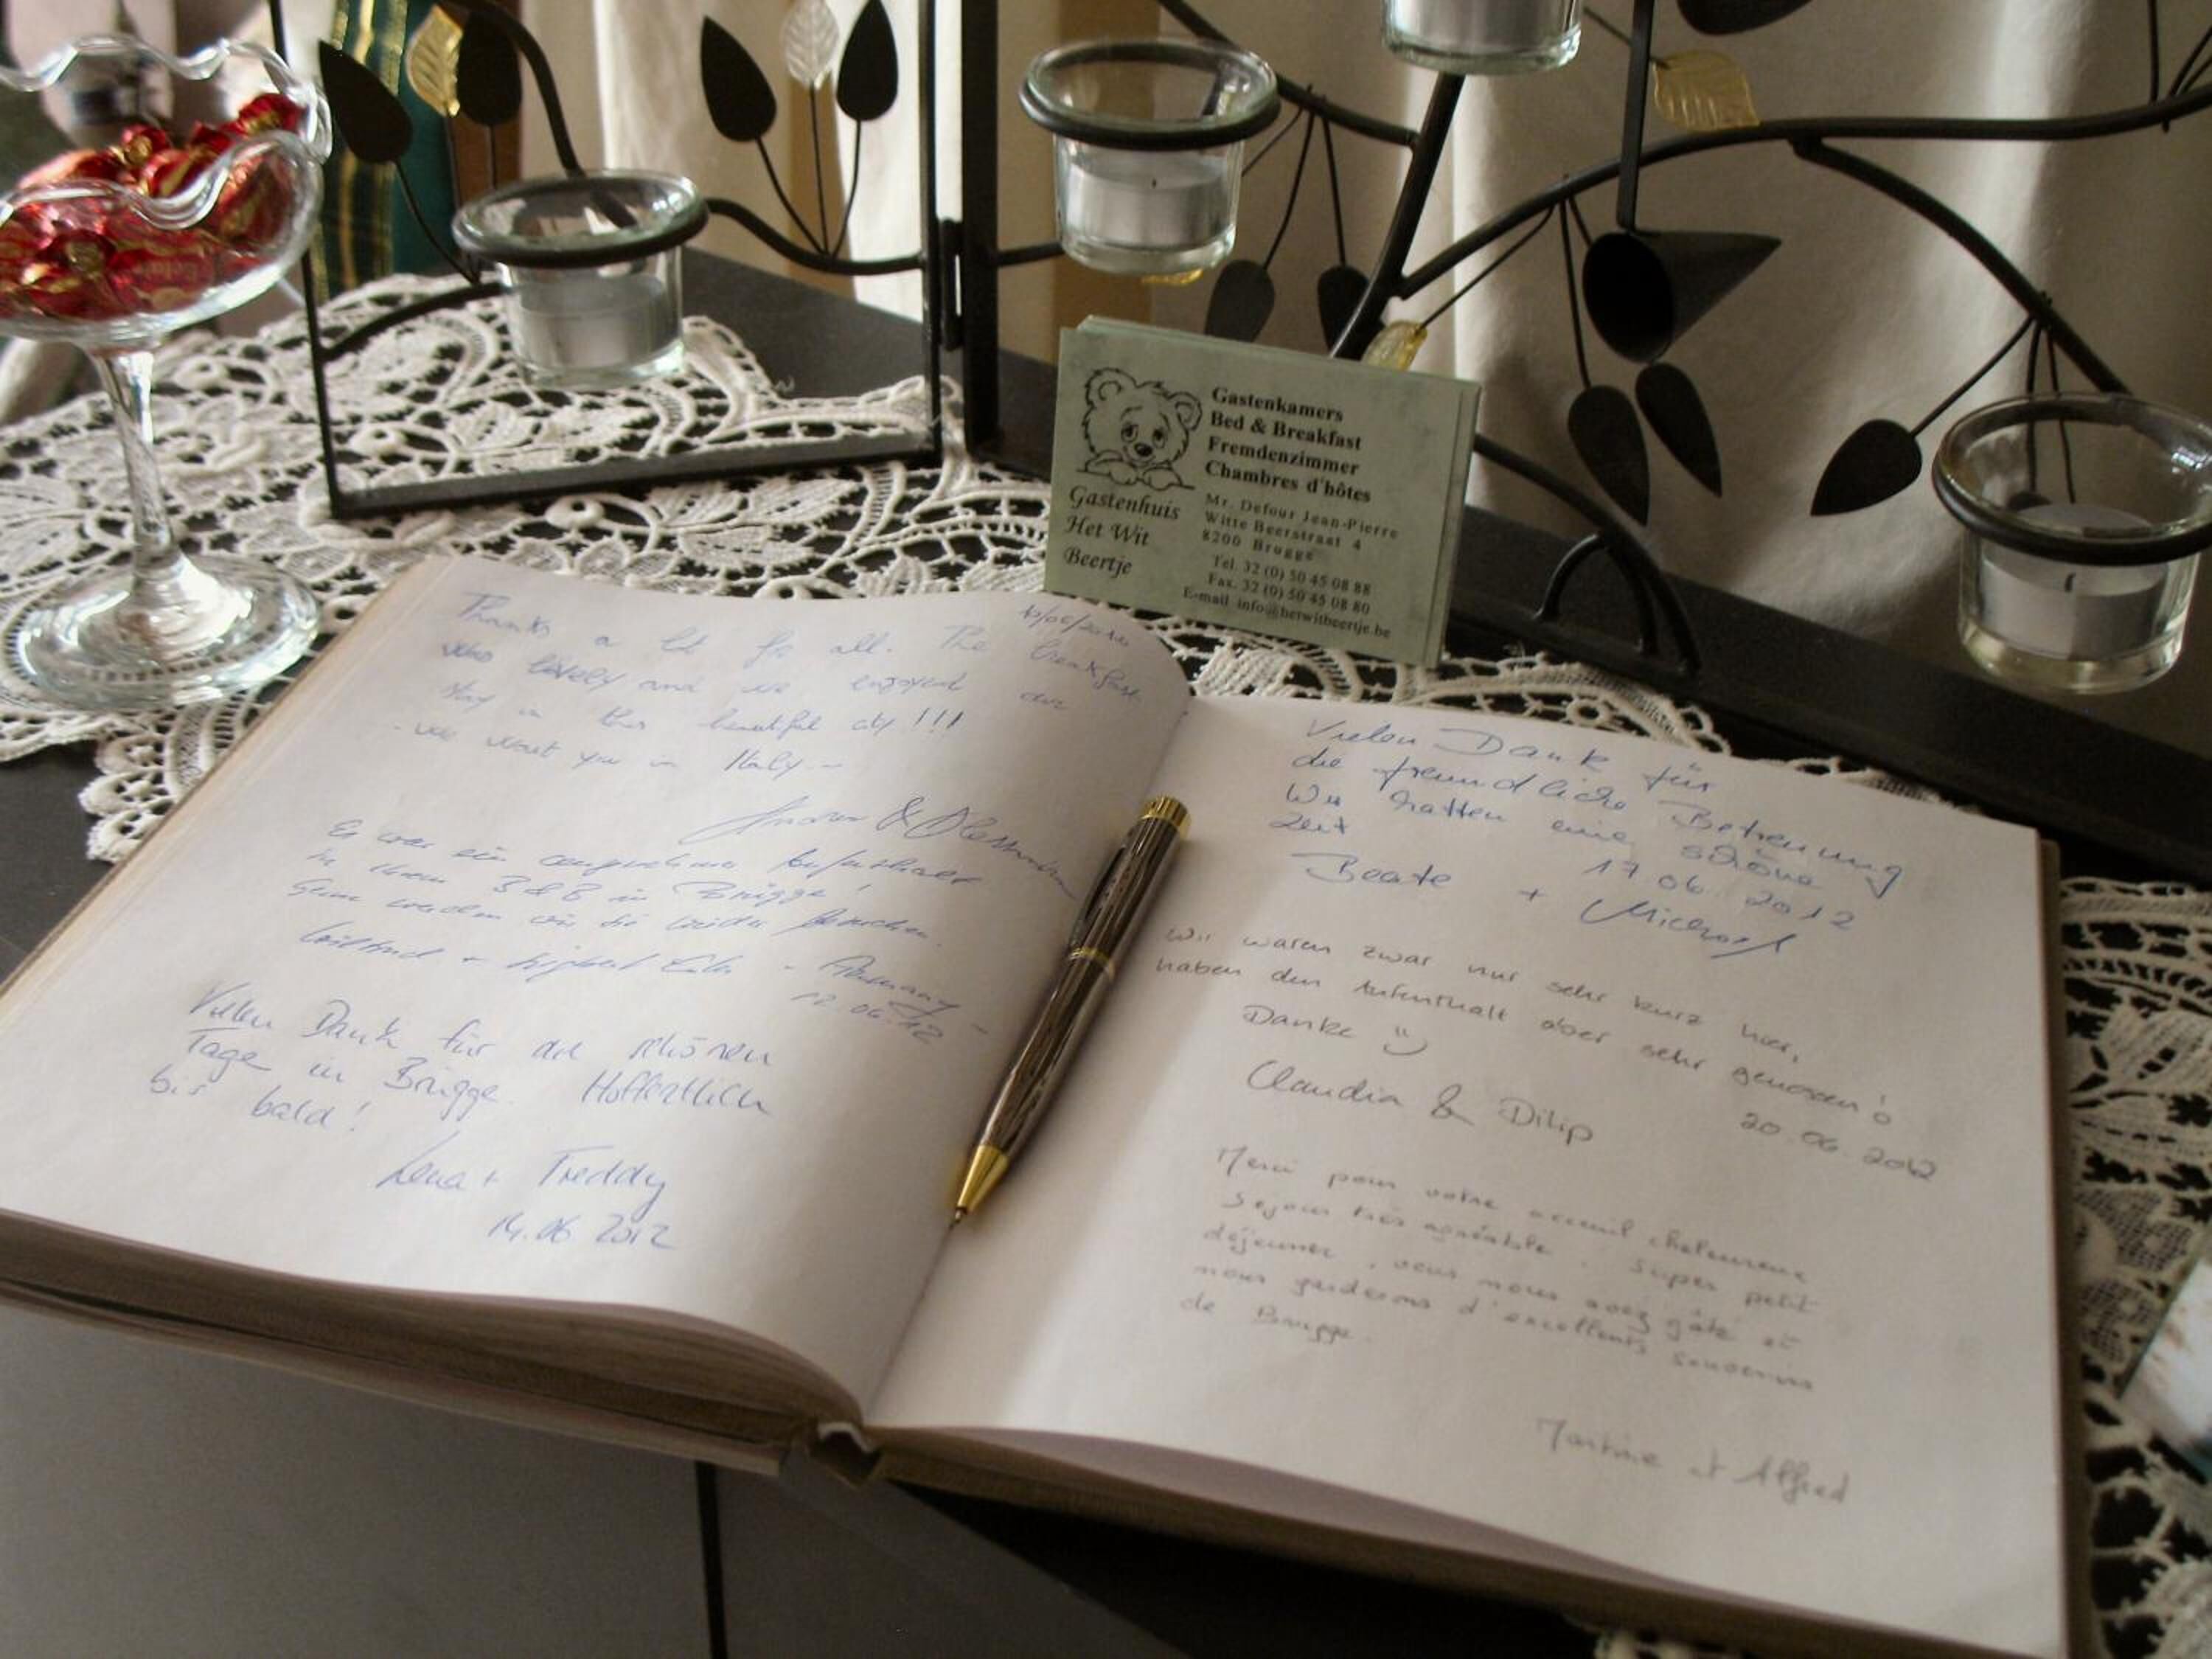 Gastenkamers
Bed & Breakfast
Fremdenzimmer
Chambres d'hôtes
Gastenhuis
Het Wit
Beertje
Mr. Defour Jean-Pierre
Witte Beerstraat 4
8200 Brugge
Tel. 32 (0) 50 45 08 88
Fax. 32 (0) 50 45 08 80
E-mail info@hetwitbeertje.be
Thanks a lot for all. The breakfast
was lovely and we enjoyed our
stay in this beautiful city!!!
- We wait you in Italy -
Es war ein angenehmer Aufenthalt
in Ihrem B&B in Brügge!
Gern werden wir Sie wieder besuchen.
12.06.12
Vielen Dank für die schönen
Tage in Brügge. Hoffentlich
bis bald!
Lena + Freddy
14.06 2012
Vielen Dank für
die freundliche Betreuung
Wir hatten eine schöne
Zeit
17.06.2012
Beate + Michael
Wir waren zwar nur sehr kurz hier,
haben den Aufenthalt aber sehr genossen!
Danke
Claudia & Dilip
20.06.2012
Merci pour votre acceuil chaleureux
Séjour très agréable. Super petit
déjeuner, vous nous avez gâté et
nous garderons d'excellents souvenirs
de Brugge.
Martine et Alfred